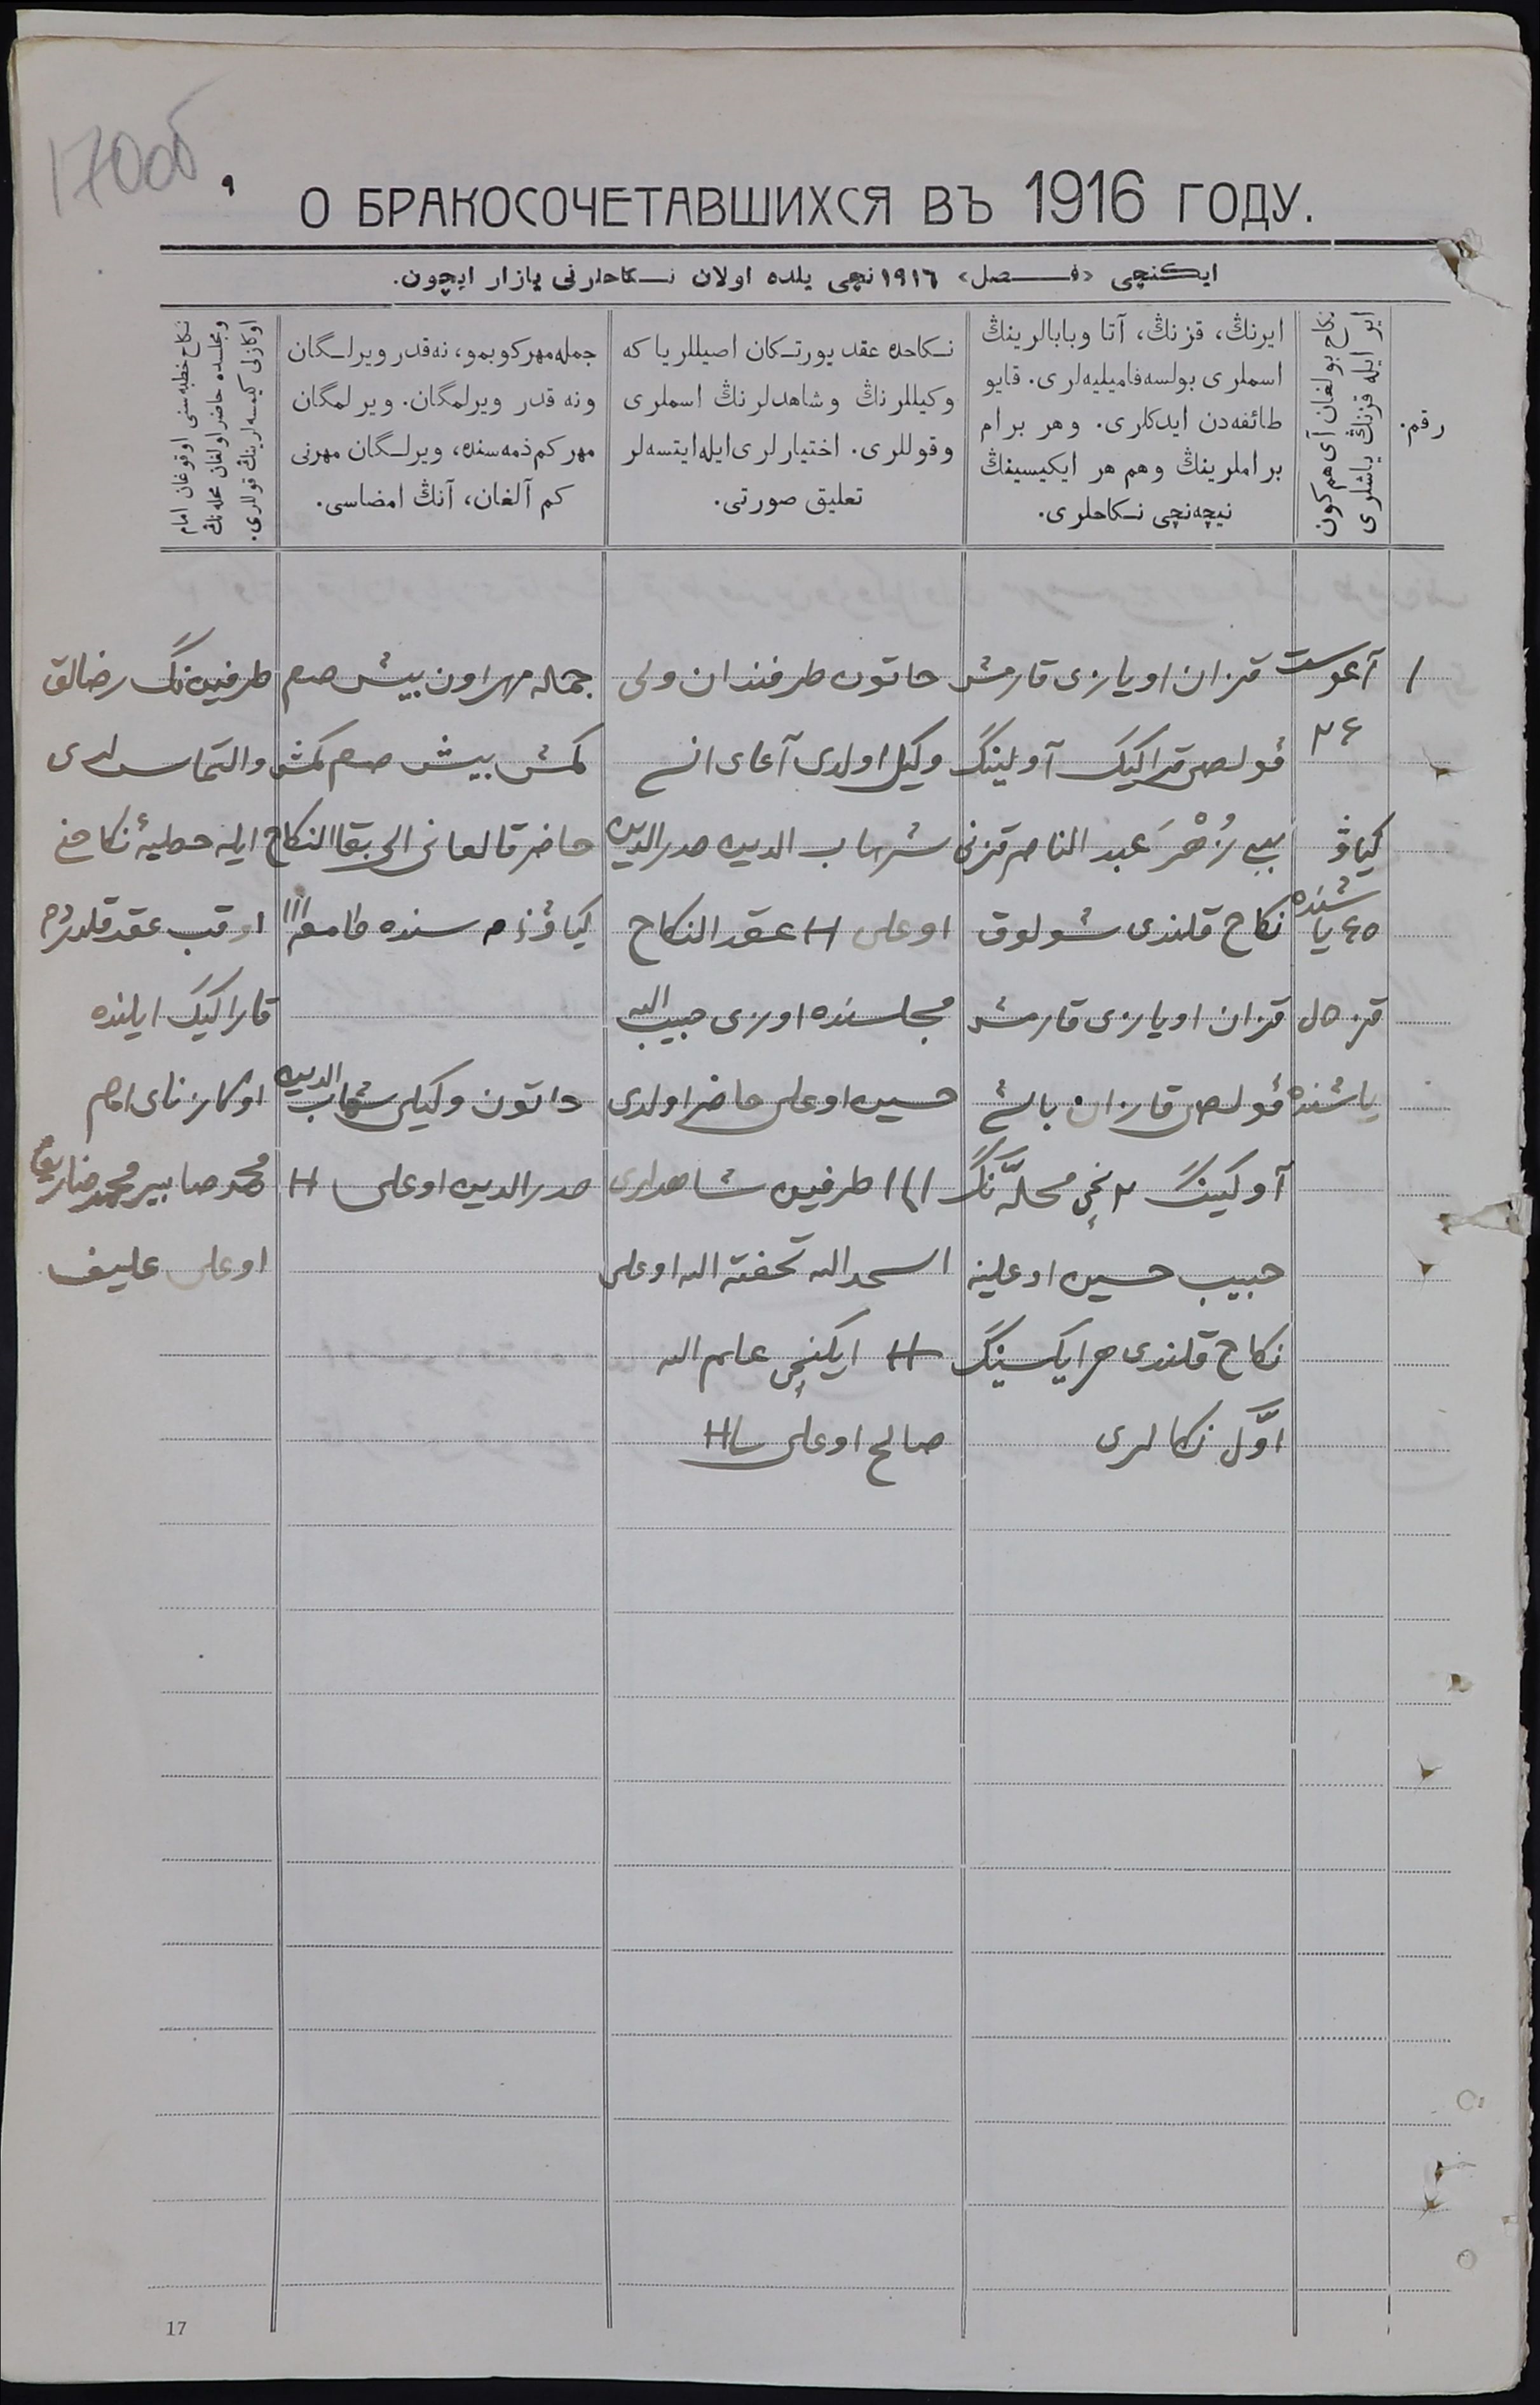 170об
۹
О БРАКОСОЧЕТАВШИХСЯ ВЪ 1916 ГОДУ.
ایکنچی «فصل» ۱۹۱٦ نچی یلده اولان نکاحلرنی یازار ایچون.
رقم.
نکاح بولغان آی هم کون
ایر ایله قزنڭ یاشلری
ایرنڭ، قزنڭ، آتا وبابالرینڭ
اسملری بولسه فامیلیه‌لری. قایو
طائفه‌دن ایدکلری. وهر برام
براملرینڭ وهم هر ایکیسینڭ
نیچه‌نچی نکاحلری.
نکاحده عقد یورتکان اصیللر یا که
وکیللرنڭ وشاهدلرنڭ اسملری
وقوللری. اختیارلری ایله ایتسه‌لر
تعلیق صورتی.
جمله مهر کوبمو، نه قدر ویرلگان
ونه قدر ویرلمگان. ویرلمگان
مهر کم ذمه‌سنده، ویرلگان مهرنی
کم آلغان، آنڭ امضاسی.
نکاح خطبه‌سنی اوقوغان امام
ومجلسده حاضر اولغان محله‌نڭ
اوکازلی کیمسه‌لرینڭ قوللری.
۱
آغوست
۲۴
کیاو
۴۵ یاشنده
قز
یاشنده
قزان اویازی قارمش
آولینگ
عبد الناصر قزنی
نکاح قلندی شولوق
قزان اویازی قارمش
قازان باشی
آولینگ ۲ نچی محله‌نگ
حبیب حسین اوغلینه
نکاح قلندی هر ایکسینگ
اوّل نکالری
خاتون طرفندان ولی
وکیل اولدی آغای انسی
شهاب الدین صدرالدین
اوغلی H عقد النکاح
مجلسنده اوزی حبیب الله
حسین اوغلی حاضر اولدی
طرفین شاهدلری
اسدالله تحفة الله اوغلی
H ایکنچی عالم الله
صالح اوغلی H
جمله مهر اون بیش صوم
کمش بیش صوم کمش
حاضر قالغانی الی بقا النکاح
کیاو ذمه سنده
خاتون وکیلی شهاب الدین
صدرالدین اوغلی H
طرفین نگ رضالق
والتماسلری
ایله خطبۀ نکاحنی
اوقب عقد قلدردم
قاراکیک ایلنده
اوکازنای امام
محمد صابر
اوغلی علیف
17